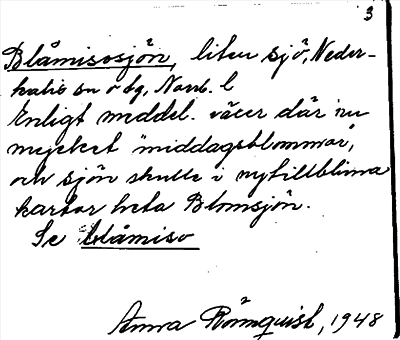 3
Blåmisosjön, liten sjö, Neder-
kalix sn o tg, Norrb. l
Enligt meddel. växer där nu
mycket "middagsblommor",
och sjön skulle i nytillblivna
kartor heta Blomsjön.
Se Blåmiso
Anna Rönnquist, 1948